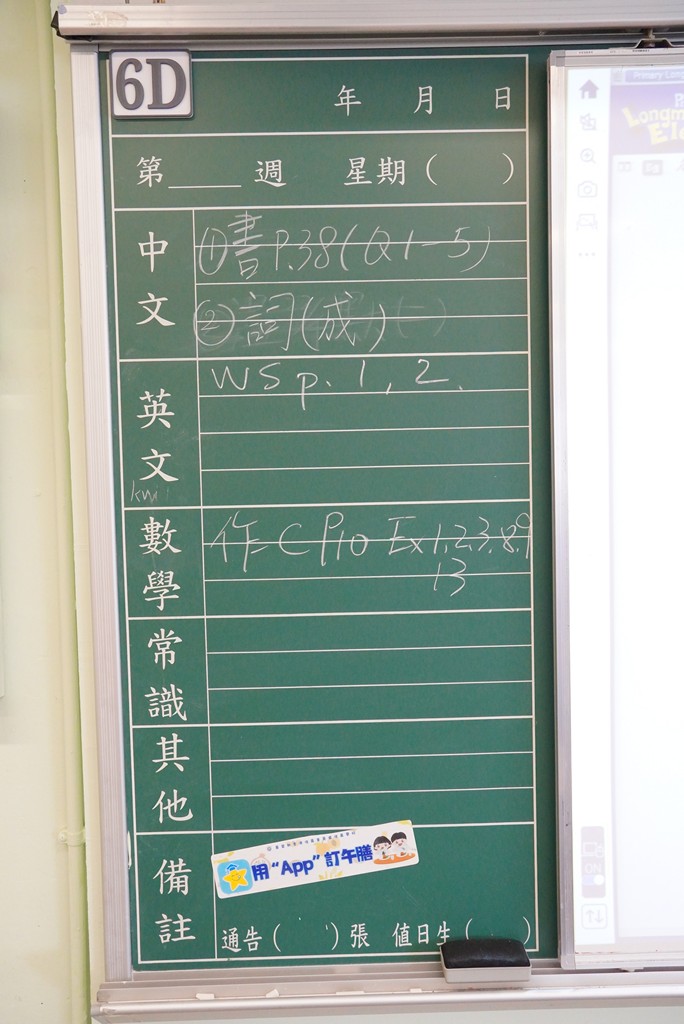 6D
年 月 日
第____週 星期( )
中文
①書P.38(Q1-5)
②詞(成)
英文
WS p. 1, 2.
數學
作C P10 Ex1,2,3,8,9
13
常識
其他
備註
用“App”訂午膳
通告( )張 值日生( )
Primary Long
Longm
ON